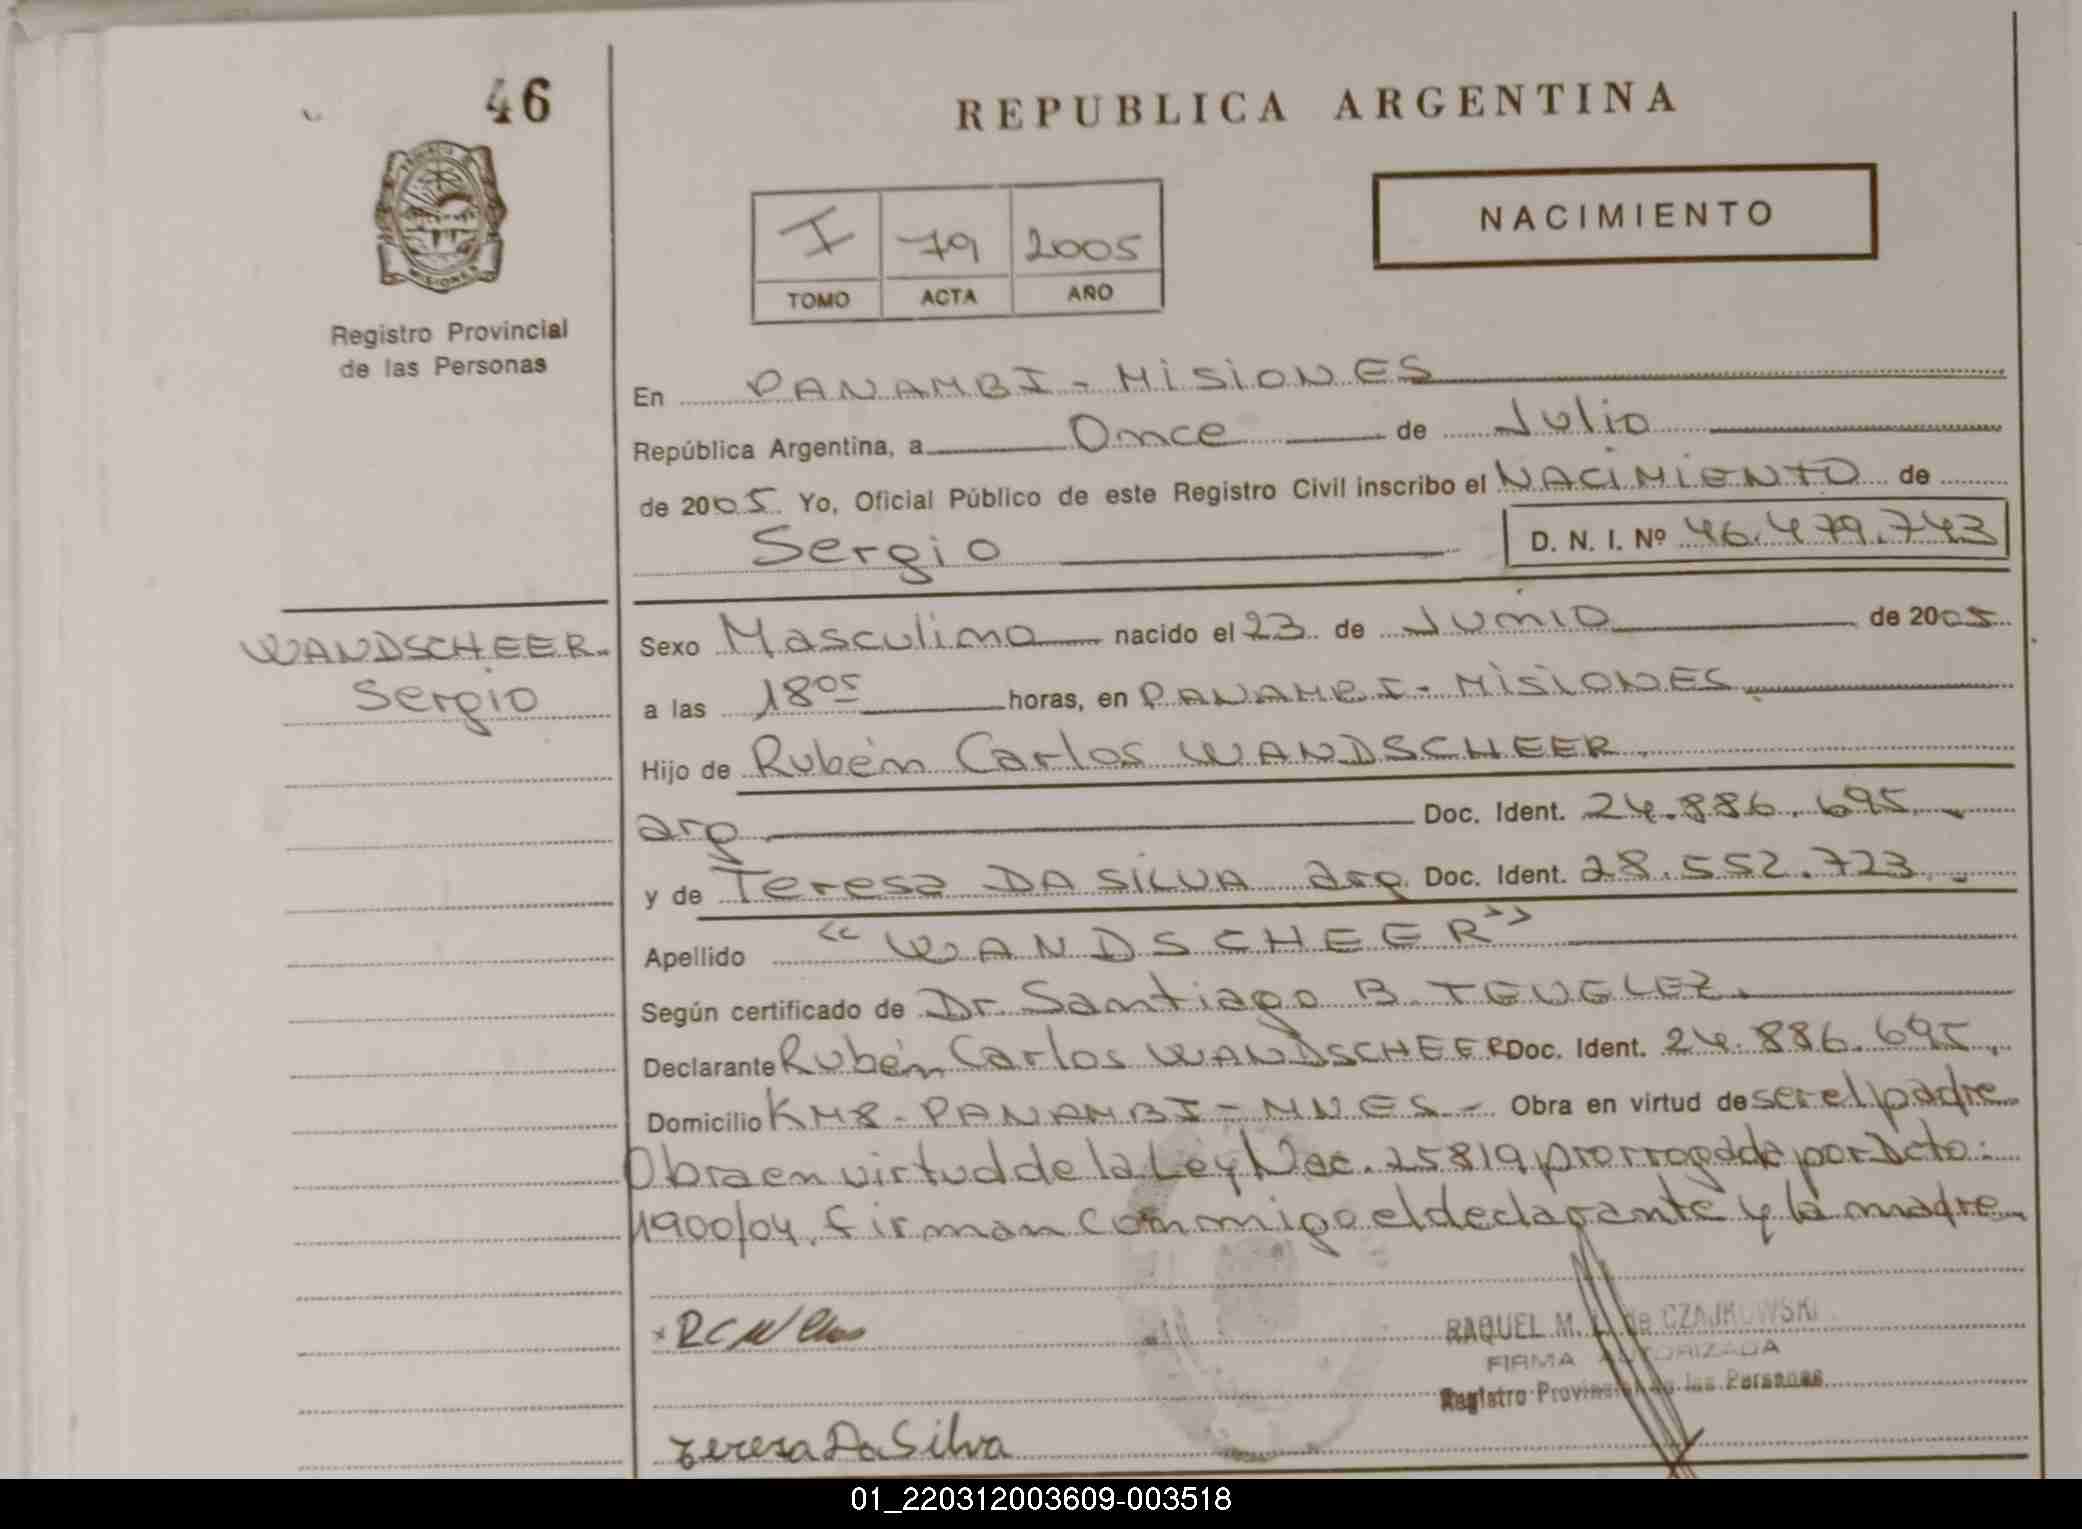 46
REPUBLICA ARGENTINA
NACIMIENTO
I 79 2005
TOMO ACTA AÑO
Registro Provincial
de las Personas
En PANAMBI - MISIONES
República Argentina, a Once de Julio
de 2005 Yo, Oficial Público de este Registro Civil inscribo el NACIMIENTO de
Sergio D. N. I. Nº 46.479.743
WANDSCHEER
Sergio
Sexo Masculino nacido el 23 de Junio de 2005
a las 18 05 horas, en PANAMBI - MISIONES
Hijo de Rubén Carlos WANDSCHEER
arg Doc. Ident. 24.886.695
y de Teresa DA SILVA arg. Doc. Ident. 28.552.723
Apellido "WANDSCHEER"
Según certificado de Dr. Santiago B.
Declarante Rubén Carlos WANDSCHEER Doc. Ident. 24.886.695
Domicilio KM8 - PANAMBI - MNES - Obra en virtud de ser el padre
Obra en virtud de la Ley Nac. 25819 prorrogada por Dcto:
1900/04. firman conmigo el declarante y la madre
RAQUEL M. L. de CZAJKOWSKI
FIRMA AUTORIZADA
Registro Provincial de las Personas
Teresa Da Silva
01_220312003609-003518